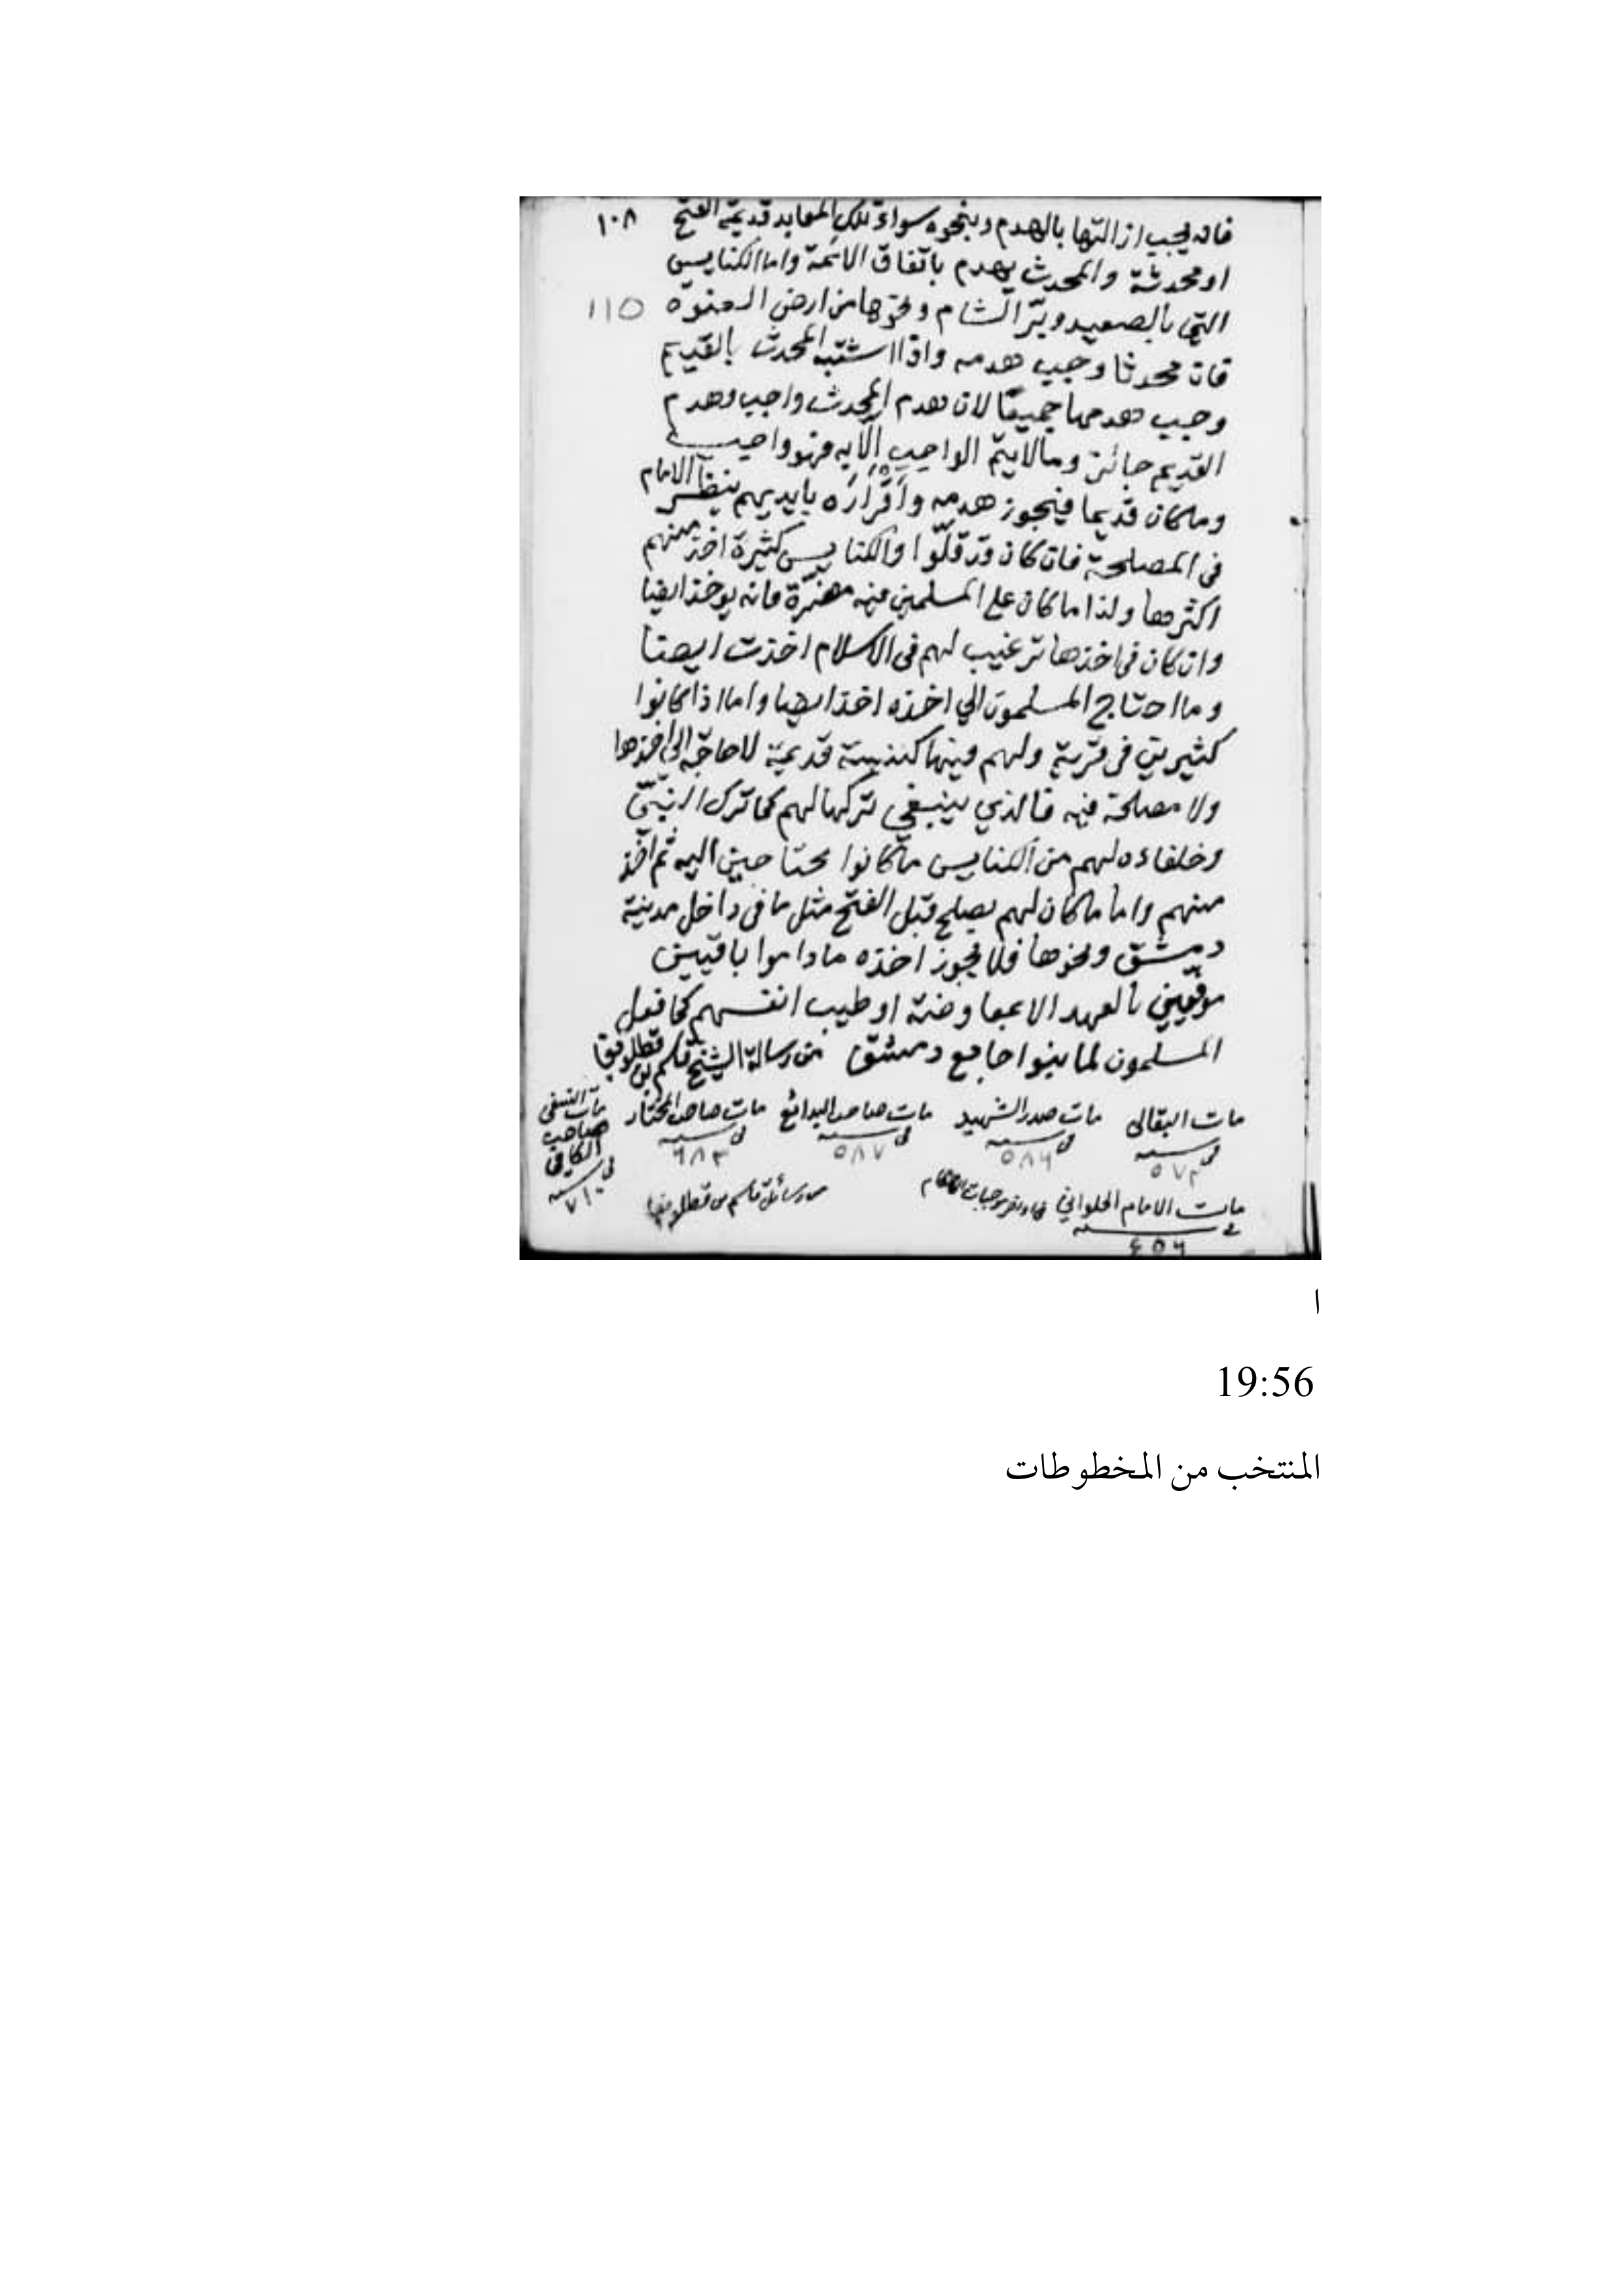 فانه يجب ازالتها بالهدم وبنحوه سواء تلك المعابد قديمة الفتح ١٠٨
او محدثة والمحدث يهدم باتفاق الائمة واما الكنايس
التي بالصعيد وبرّ الشام ونحوها من ارض العنوه ١١٥
فان محدثا وجب هدمه واذا اشتبه المحدث بالقديم
وجب هدمهما جميعًا لان هدم المحدث واجب وهدم
القديم جائز وما لا يتم الواجب الا به فهو واجب
وما كان قديما فيجوز هدمه واقراره بايديهم ينظر الامام
في المصلحة فان كان قد قلّوا والكنايس كثيرة اخذ منهم
اكثرها ولذا ما كان على المسلمين فيه مضرّة فانه يوخذ ايضا
وان كان في اخذها ترغيب لهم في الاسلام اخذت ايضا
وما احتاج المسلمون الي اخذه اخذ ايضا واما اذا كانوا
كثيرين في قرية ولهم فيها كنيسة قديمة لا حاجة الى اخذها
ولا مصلحة فيه فالذي ينبغي تركها لهم كما ترك النبيّ
وخلفاءه لهم من الكنايس ما كانوا محتاجين اليه ثم اخذ
منهم واما ما كان لهم بصلح قبل الفتح مثل ما في داخل مدينة
دمشق ونحوها فلا يجوز اخذه ما داموا باقيين
موفّين بالعهد الا بمعاوضة او طيب انفسهم كما فعل
المسلمون لما بنوا جامع دمشق من رسالة الشيخ قاسم بن قطلوبغا
مات البقالى في سنه ٥٧٣
مات صدر الشهيد في سنه ٥٨٦
مات صاحب البدائع في سنه ٥٨٧
مات صاحب المختار في سنه ٦٨٣
مات النسفي صاحب الكافي في سنه ٧١٠
مات الامام الحلواني في سنه ٤٥٦
من رسائل قاسم بن قطلوبغا
ا
19:56
المنتخب من المخطوطات